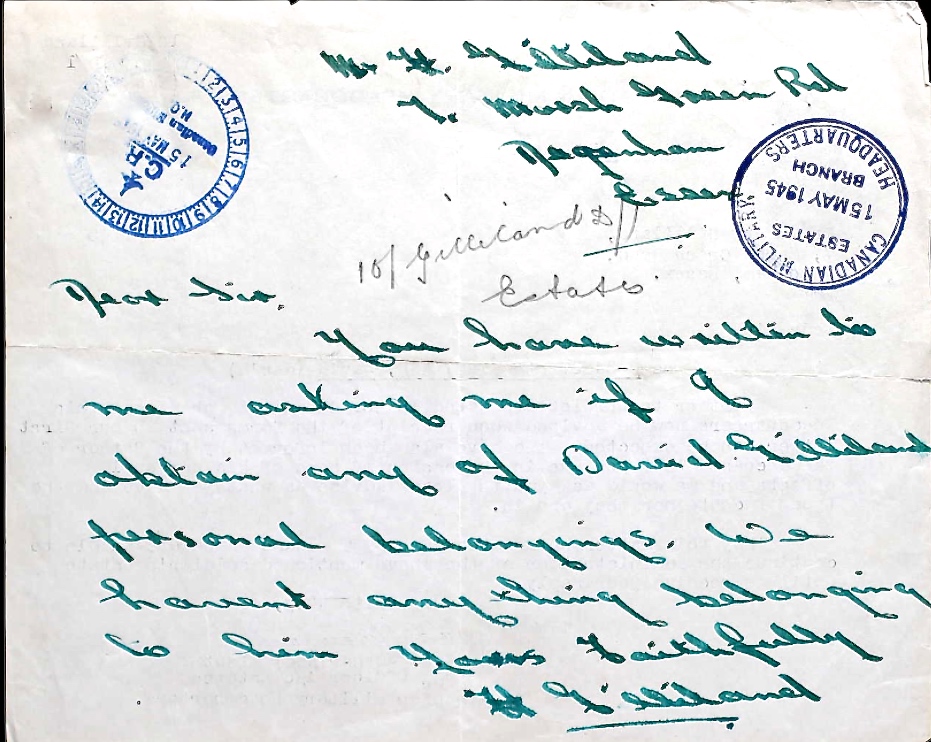 Mr H. Gilliland
7. Marsh Green Rd
Dagenham
Essex
10/ Gilliland D
Estates
Dear Sir,
You have written to
me asking me if I
obtain any of David Gilliland
personal belongings. We
havent anything belonging
to him Yours Faithfully
H Gilliland
CANADIAN MILITARY
HEADQUARTERS
ESTATES
15 MAY 1945
BRANCH
C.R.
15 MAY
Canadian
H.Q.
2 3 4 5 6 7 8 9 10 11 12 13 14